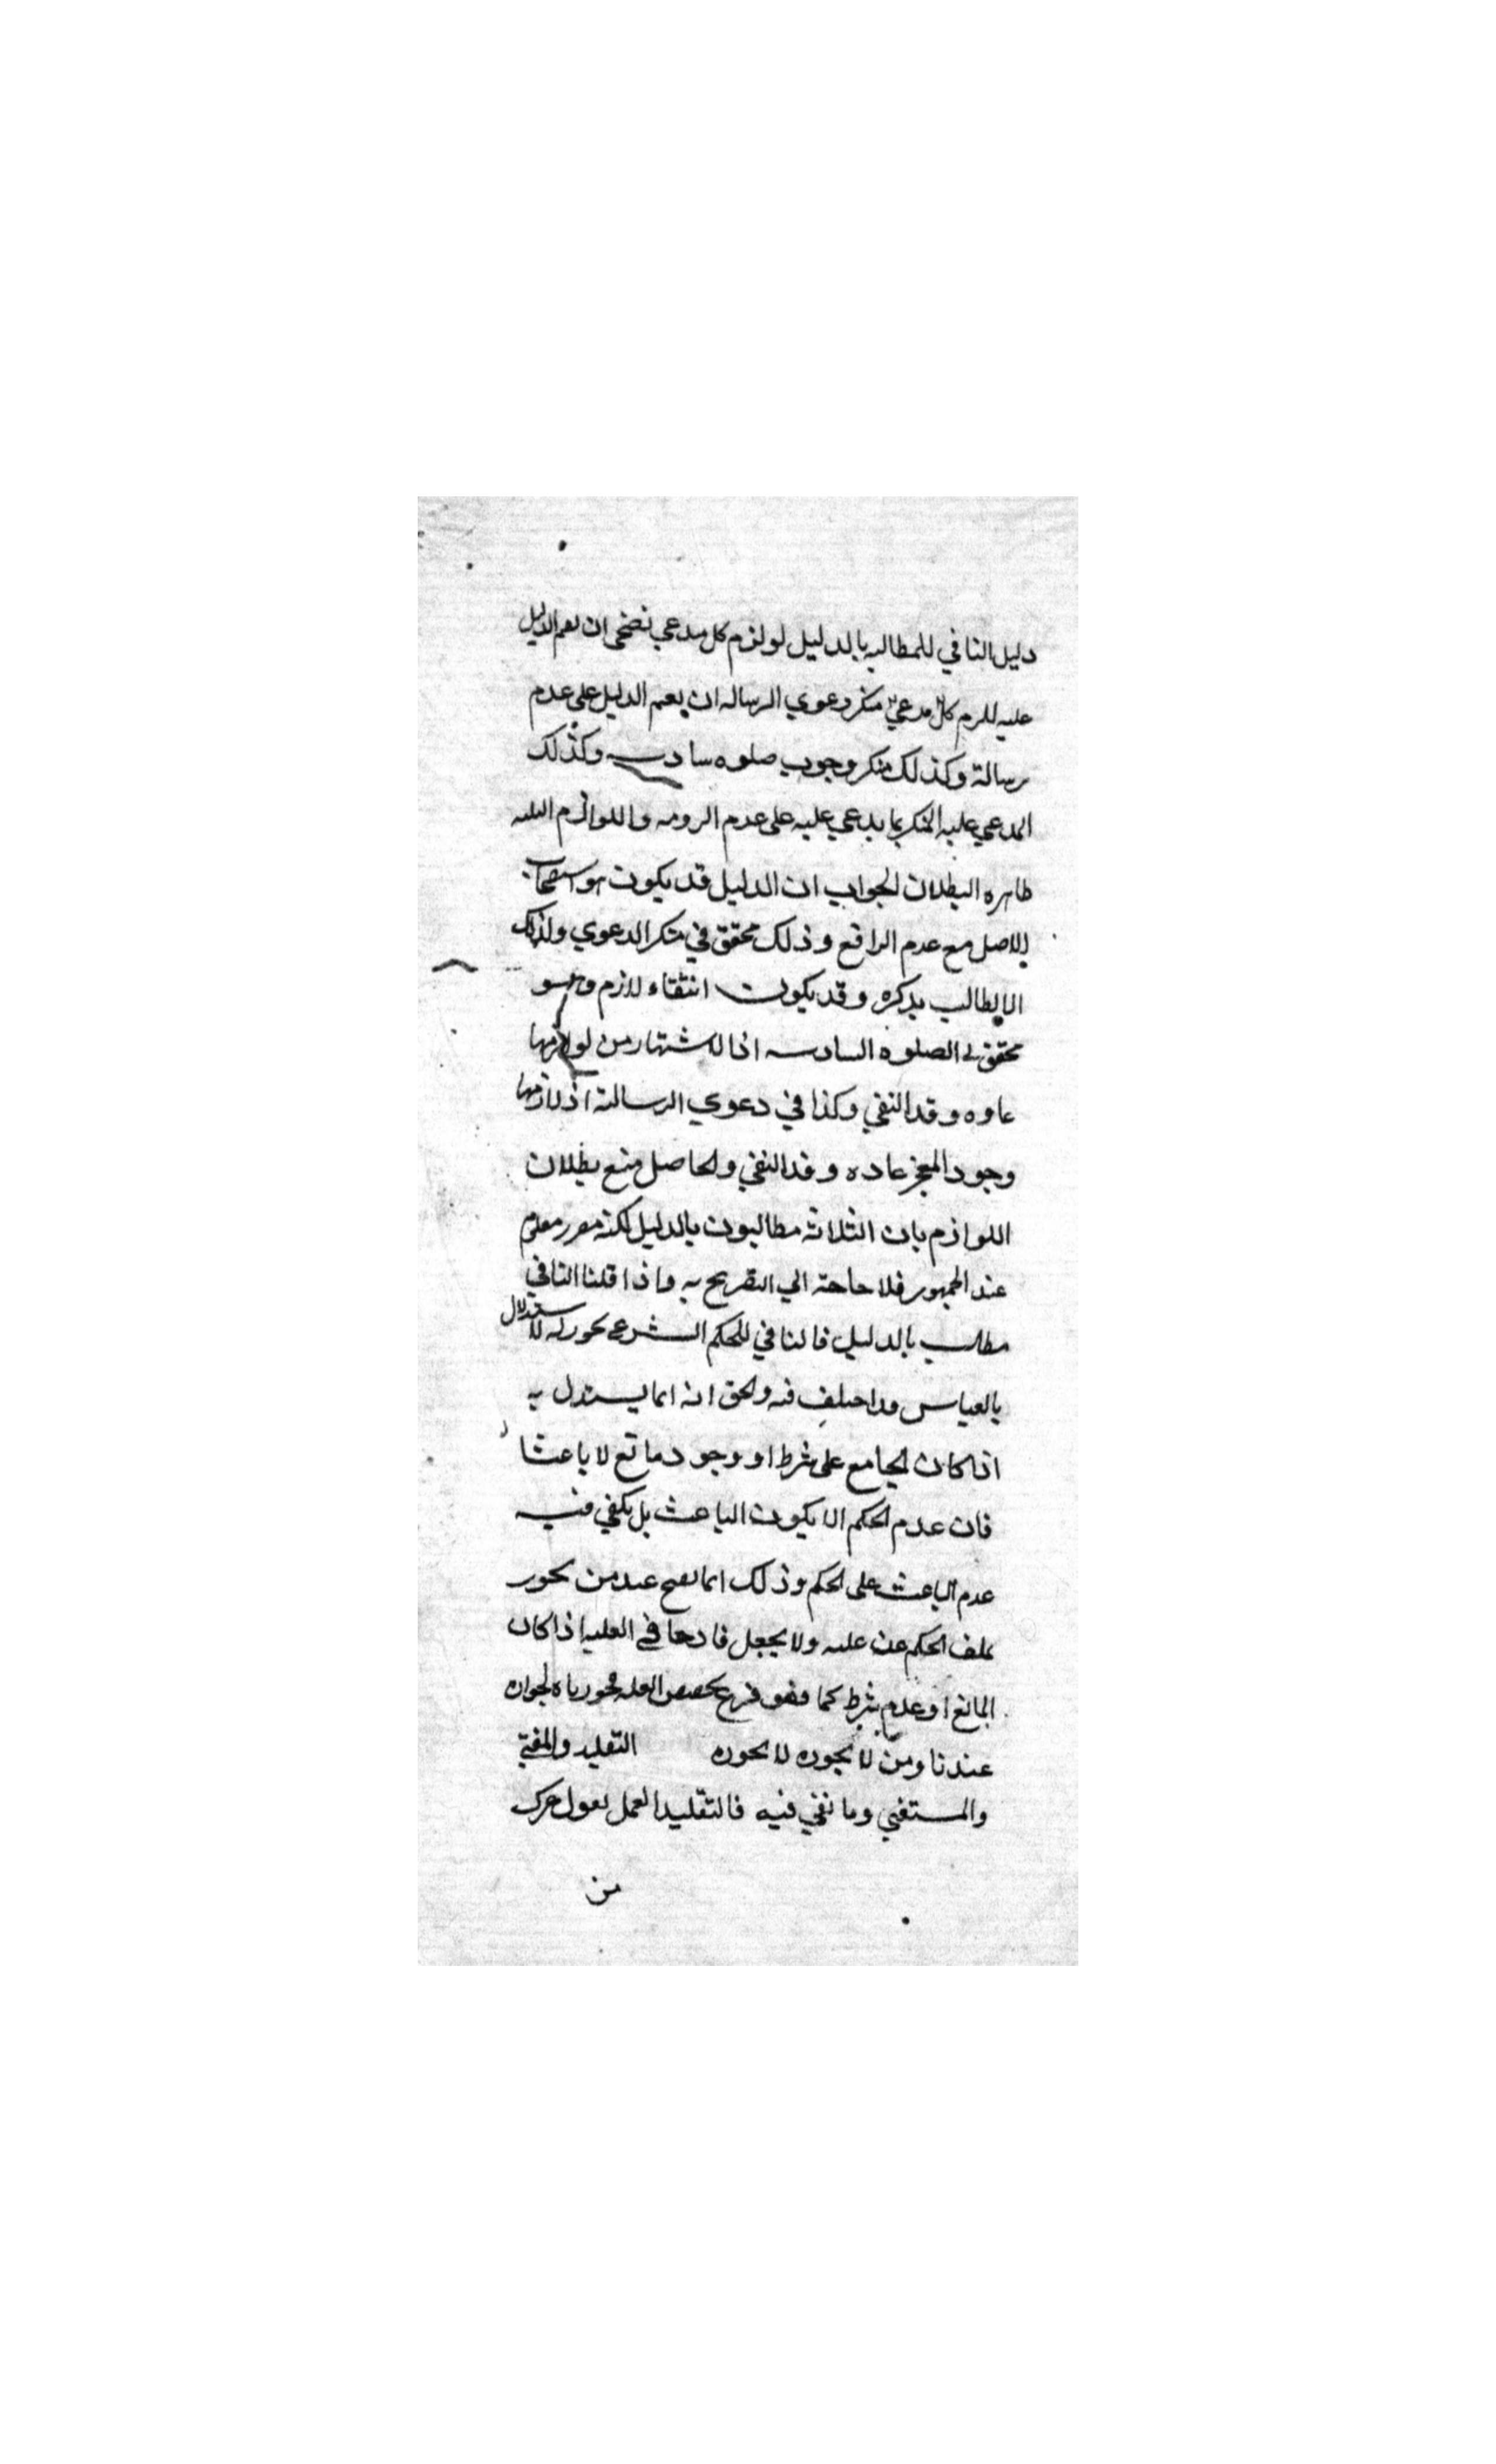 دليل النافي للمطالبه بالدليل لو لزم كل مدعي نضحى ان يعم الدليل
عليه للزم كل مدعي منكر دعوي الرساله ان يعم الدليل على عدم
رسالة وكذلك منكر وجوب صلوه سادسه وكذلك
المدعي عليه المنكر بما يدعي عليه على عدم الرومه واللوازم الثلثه
ظاهره البطلان الجواب ان الدليل قد يكون هو استصحاب
للاصل مع عدم الرافع وذلك محقق في منكر الدعوي ولذلك
لا يطالب بذكره وقد يكون انتفاء لازم وهو
محقق في الصلوه السادسه اذا لاشتهار من لوازمها
عاده وقد انتفي وكذا في دعوي الرسالة اذ لازمها
وجود المعجز عاده وقد انتفي والحاصل منع بطلان
اللوازم بان الثلاثه مطالبون بالدليل لكنه مقرر معلوم
عند الجمهور فلا حاجة الي التصريح به واذا قلنا النافي
مطالب بالدليل فالنافي للحكم الشرعي يجوز له الاستدلال
بالقياس وقد اختلف فيه والحق انه انما يستدل به
اذا كان الجامع على شرط او وجود مانع لا باعثا
فان عدم الحكم لا يكون الباعث بل يكفي فيه
عدم الباعث على الحكم وذلك انما يصح عند من يجوز
تخلف الحكم عن عليه ولا يجعل قادحا في العليه اذا كان
المانع او عدم شرط كما فهو فرع تخصيص العله فجوزناه لجوازه
عندنا ومن لا يجوزه لا يجوزه التقليد والمفتي
والمستفتي وما نفي فيه فالتقليد العمل بقول غيرك
من